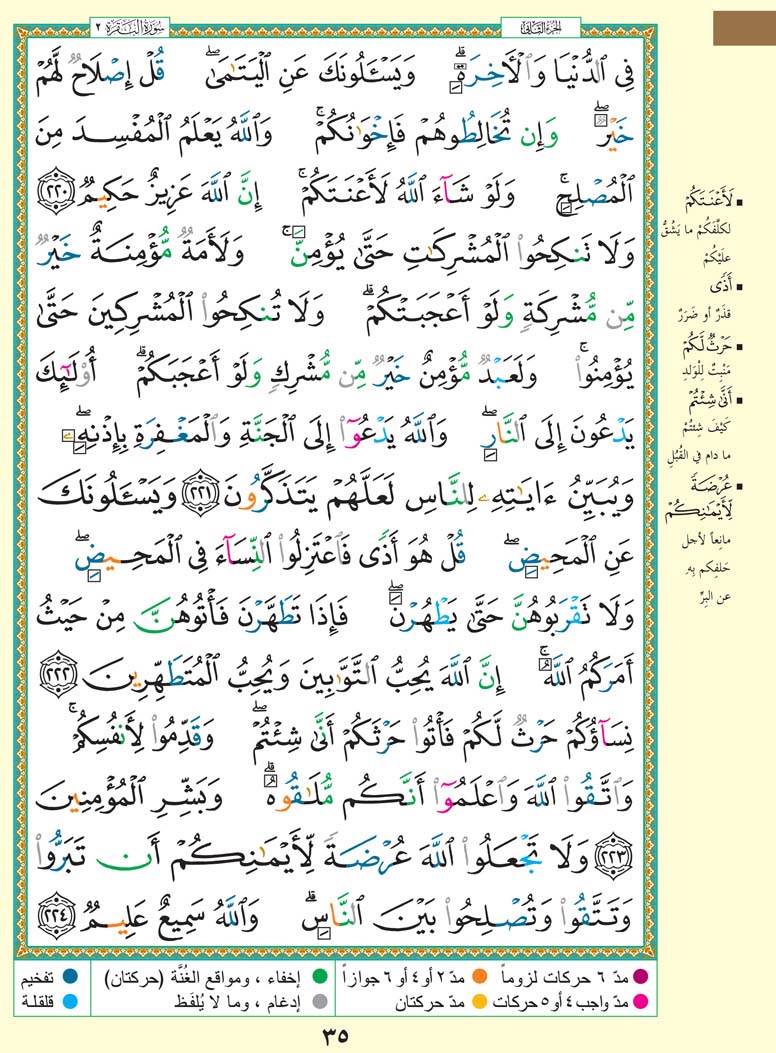 الجزء الثاني
سورة البقرة ٢
فِي ٱلدُّنْيَا وَٱلْأٓخِرَةِۗ وَيَسْـَٔلُونَكَ عَنِ ٱلْيَتَٰمَىٰۖ قُلْ إِصْلَاحٌ لَّهُمْ
خَيْرٌۖ وَإِن تُخَالِطُوهُمْ فَإِخْوَٰنُكُمْۚ وَٱللَّهُ يَعْلَمُ ٱلْمُفْسِدَ مِنَ
ٱلْمُصْلِحِۚ وَلَوْ شَآءَ ٱللَّهُ لَأَعْنَتَكُمْۚ إِنَّ ٱللَّهَ عَزِيزٌ حَكِيمٌ ٢٢٠
وَلَا تَنكِحُوا۟ ٱلْمُشْرِكَٰتِ حَتَّىٰ يُؤْمِنَّۚ وَلَأَمَةٌ مُّؤْمِنَةٌ خَيْرٌ
مِّن مُّشْرِكَةٍ وَلَوْ أَعْجَبَتْكُمْۗ وَلَا تُنكِحُوا۟ ٱلْمُشْرِكِينَ حَتَّىٰ
يُؤْمِنُوا۟ۚ وَلَعَبْدٌ مُّؤْمِنٌ خَيْرٌ مِّن مُّشْرِكٍ وَلَوْ أَعْجَبَكُمْۗ أُو۟لَٰٓئِكَ
يَدْعُونَ إِلَى ٱلنَّارِۖ وَٱللَّهُ يَدْعُوٓا۟ إِلَى ٱلْجَنَّةِ وَٱلْمَغْفِرَةِ بِإِذْنِهِۦۖ
وَيُبَيِّنُ ءَايَٰتِهِۦ لِلنَّاسِ لَعَلَّهُمْ يَتَذَكَّرُونَ ٢٢١ وَيَسْـَٔلُونَكَ
عَنِ ٱلْمَحِيضِۖ قُلْ هُوَ أَذًى فَٱعْتَزِلُوا۟ ٱلنِّسَآءَ فِي ٱلْمَحِيضِۖ
وَلَا تَقْرَبُوهُنَّ حَتَّىٰ يَطْهُرْنَۖ فَإِذَا تَطَهَّرْنَ فَأْتُوهُنَّ مِنْ حَيْثُ
أَمَرَكُمُ ٱللَّهُۚ إِنَّ ٱللَّهَ يُحِبُّ ٱلتَّوَّٰبِينَ وَيُحِبُّ ٱلْمُتَطَهِّرِينَ ٢٢٢
نِسَآؤُكُمْ حَرْثٌ لَّكُمْ فَأْتُوا۟ حَرْثَكُمْ أَنَّىٰ شِئْتُمْۖ وَقَدِّمُوا۟ لِأَنفُسِكُمْۚ
وَٱتَّقُوا۟ ٱللَّهَ وَٱعْلَمُوٓا۟ أَنَّكُم مُّلَٰقُوهُۗ وَبَشِّرِ ٱلْمُؤْمِنِينَ
٢٢٣ وَلَا تَجْعَلُوا۟ ٱللَّهَ عُرْضَةً لِّأَيْمَٰنِكُمْ أَن تَبَرُّوا۟
وَتَتَّقُوا۟ وَتُصْلِحُوا۟ بَيْنَ ٱلنَّاسِۗ وَٱللَّهُ سَمِيعٌ عَلِيمٌ ٢٢٤
▪ لَأَعْنَتَكُمْ
لكلَّفَكُمْ ما يَشُقُّ
علَيْكُمْ
▪ أَذًى
قذَرٌ أو ضَرَرٌ
▪ حَرْثٌ لَّكُمْ
مَنْبِتٌ لِلْوَلدِ
▪ أَنَّىٰ شِئْتُمْ
كَيْفَ شِئتُمْ
ما دام في القُبُلِ
▪ عُرْضَةً
لِّأَيْمَٰنِكُمْ
مانِعاً لأجل
حَلفِكم بِهِ
عن البِرِّ
مدّ ٦ حركات لزوماً
مدّ ٢ أو ٤ أو ٦ جوازاً
إخفاء ، ومواقع الغُنَّة (حركتان)
تفخيم
مدّ واجب ٤ أو ٥ حركات
مدّ حركتان
إدغام ، وما لا يُلفَظ
قلقلة
٣٥